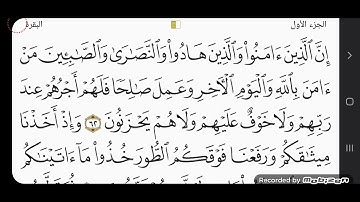 الجزء الأول البقرة
إِنَّ ٱلَّذِينَ ءَامَنُوا۟ وَٱلَّذِينَ هَادُوا۟ وَٱلنَّصَٰرَىٰ وَٱلصَّٰبِـِٔينَ مَنْ
ءَامَنَ بِٱللَّهِ وَٱلْيَوْمِ ٱلْءَاخِرِ وَعَمِلَ صَٰلِحًا فَلَهُمْ أَجْرُهُمْ عِندَ
رَبِّهِمْ وَلَا خَوْفٌ عَلَيْهِمْ وَلَا هُمْ يَحْزَنُونَ ٦٢ وَإِذْ أَخَذْنَا
مِيثَٰقَكُمْ وَرَفَعْنَا فَوْقَكُمُ ٱلطُّورَ خُذُوا۟ مَآ ءَاتَيْنَٰكُم
Recorded by
Mobizen